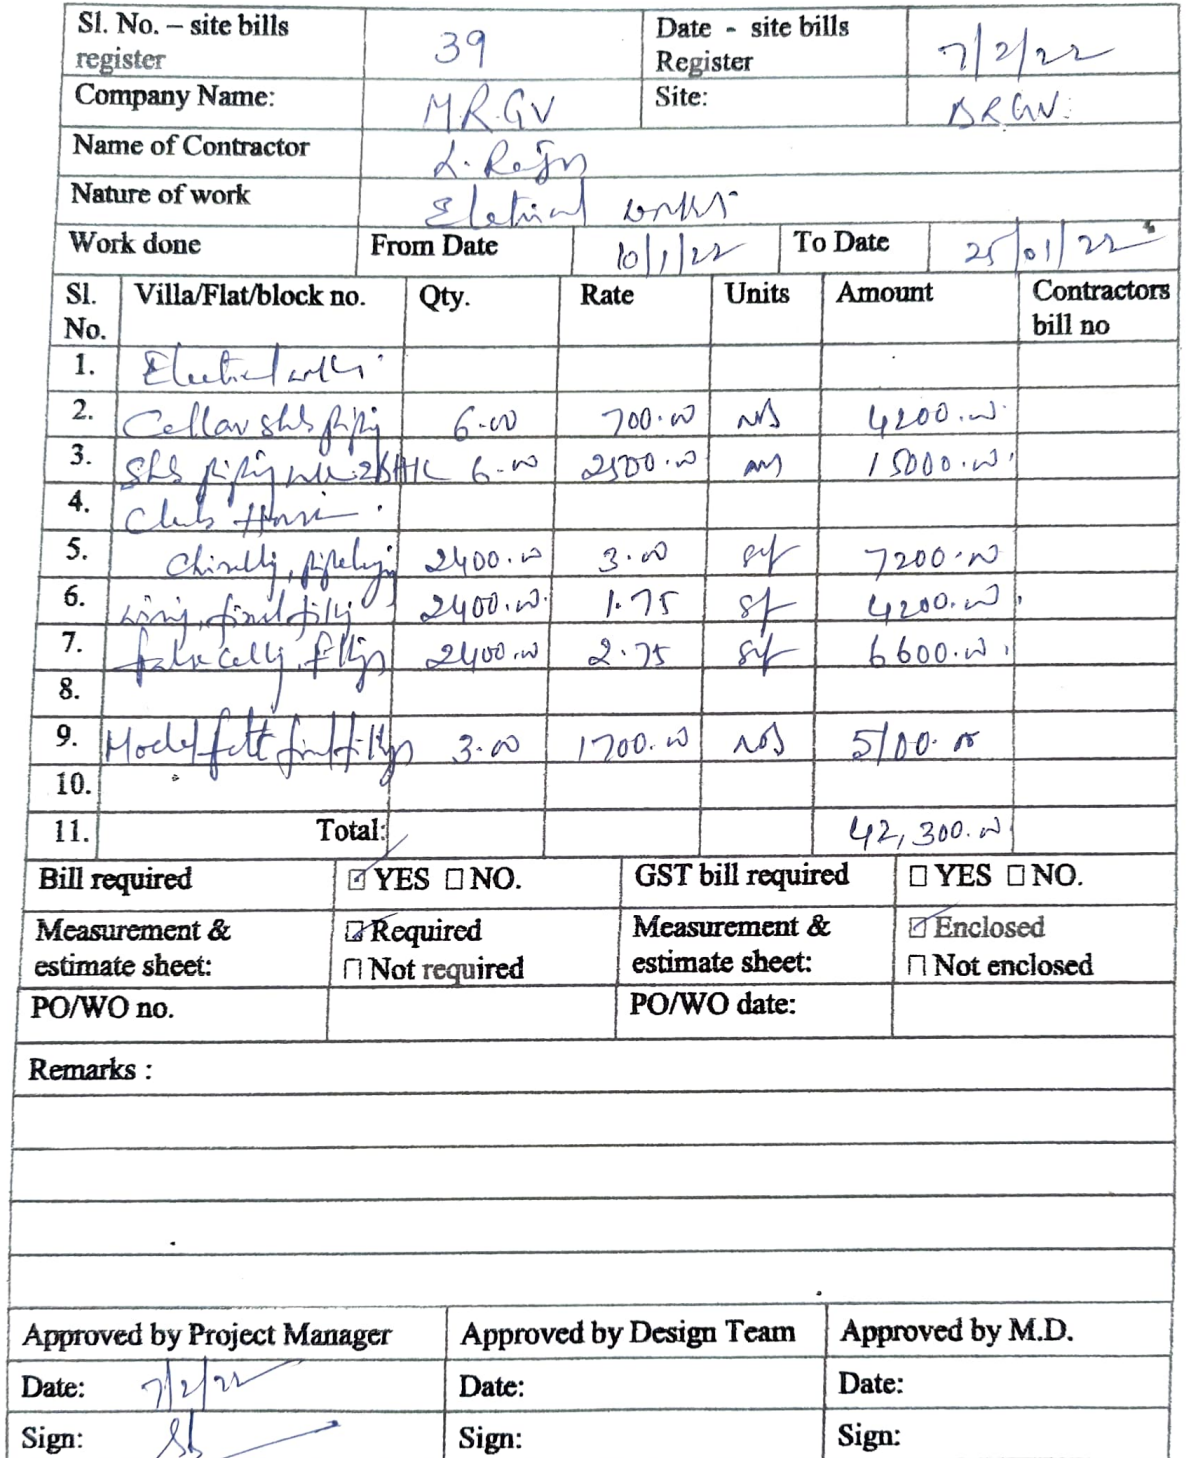 Sl. No. – site bills register 39 Date - site bills Register 7/2/22
Company Name: M.R.GV Site: BRGV.
Name of Contractor L. Raju
Nature of work Eletrical works
Work done From Date 10/1/22 To Date 25/01/22
Sl. No. Villa/Flat/block no. Qty. Rate Units Amount Contractors bill no
1. Electrical works
2. Cellar slab piping 6.00 700.00 nos 4200.00
3. Slab piping 2BHK 6.00 2500.00 nos 15000.00
4. Club House
5. Chiselling, pipeling 2400.00 3.00 sft 7200.00
6. wiring, final fitting 2400.00 1.75 sft 4200.00
7. false ceiling, fittings 2400.00 2.75 sft 6600.00
8.
9. Model flatt final fittings 3.00 1700.00 nos 5100.00
10.
11. Total: 42,300.00
Bill required ☑ YES ☐ NO. GST bill required ☐ YES ☐ NO.
Measurement & estimate sheet: ☑ Required ☐ Not required Measurement & estimate sheet: ☑ Enclosed ☐ Not enclosed
PO/WO no. PO/WO date:
Remarks :
Approved by Project Manager Approved by Design Team Approved by M.D.
Date: 7/2/22 Date: Date:
Sign: Sign: Sign: